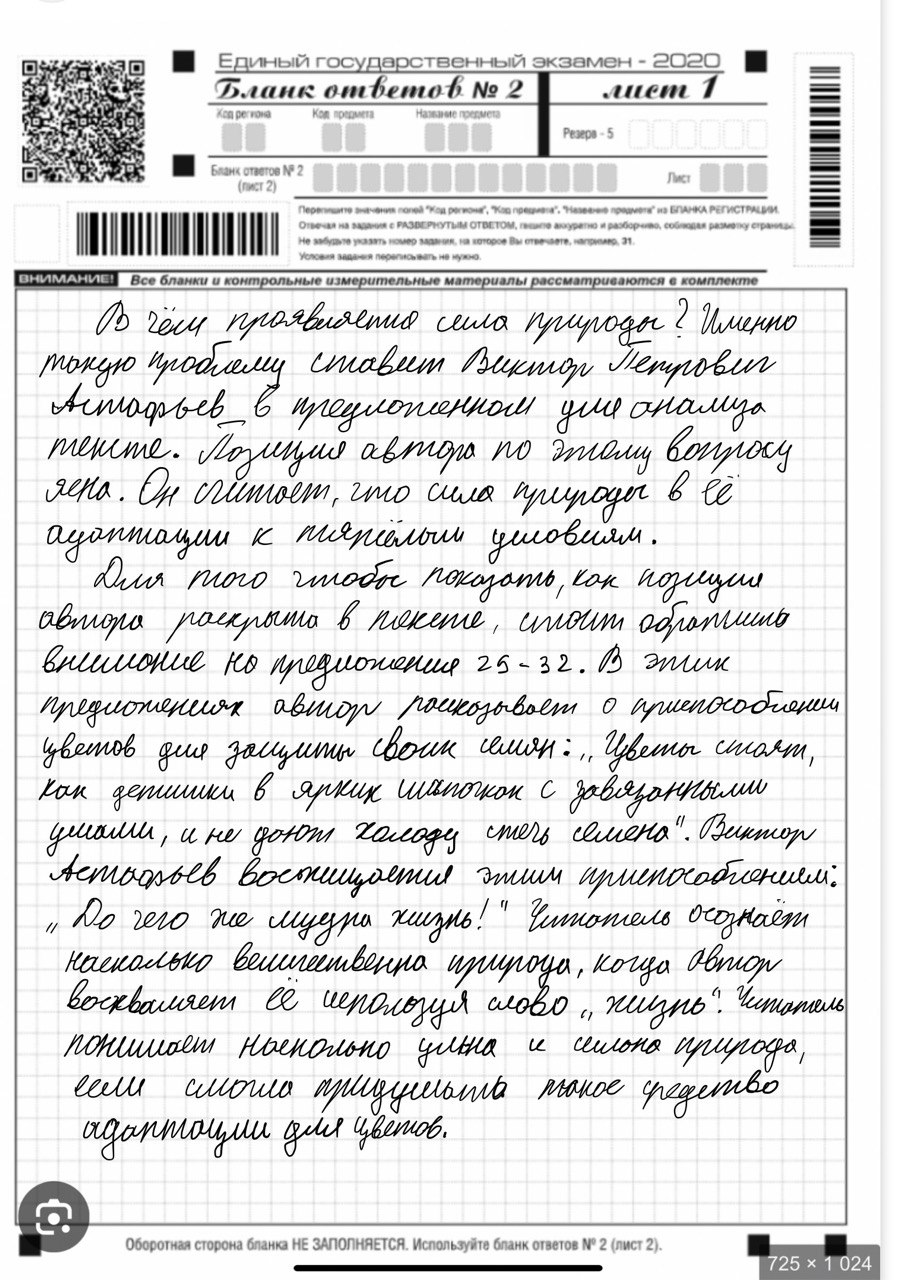 Единый государственный экзамен - 2020
Бланк ответов № 2 лист 1
Код региона Код предмета Название предмета
Резерв - 5
Бланк ответов № 2 (лист 2) Лист
Перепишите значения полей "Код региона", "Код предмета", "Название предмета" из БЛАНКА РЕГИСТРАЦИИ.
Отвечая на задания с РАЗВЕРНУТЫМ ОТВЕТОМ, пишите аккуратно и разборчиво, соблюдая разметку страницы.
Не забудьте указать номер задания, на которое Вы отвечаете, например, 31.
Условия задания переписывать не нужно.
ВНИМАНИЕ! Все бланки и контрольные измерительные материалы рассматриваются в комплекте
В чём проявляется сила природы? Именно
такую проблему ставит Виктор Петрович
Астафьев в предложенном для анализа
тексте. Позиция автора по этому вопросу
ясна. Он считает, что сила природы в её
адаптации к тяжёлым условиям.
Для того чтобы показать, как позиция
автора раскрыта в тексте, стоит обратить
внимание на предложения 25-32. В этих
предложениях автор рассказывает о приспособлении
цветов для защиты своих семян: „Цветы стоят,
как детишки в ярких шапочках с завязанными
ушами, и не дают холоду сжечь семена". Виктор
Астафьев восхищается этим приспособлениям:
„До чего же мудра жизнь!" Читатель осознаёт
насколько величественна природа, когда автор
восхваляет её используя слово „жизнь". Читатель
понимает насколько умна и сильна природа,
если смогла придумать такое средство
адаптации для цветов.
Оборотная сторона бланка НЕ ЗАПОЛНЯЕТСЯ. Используйте бланк ответов № 2 (лист 2).
725 × 1 024